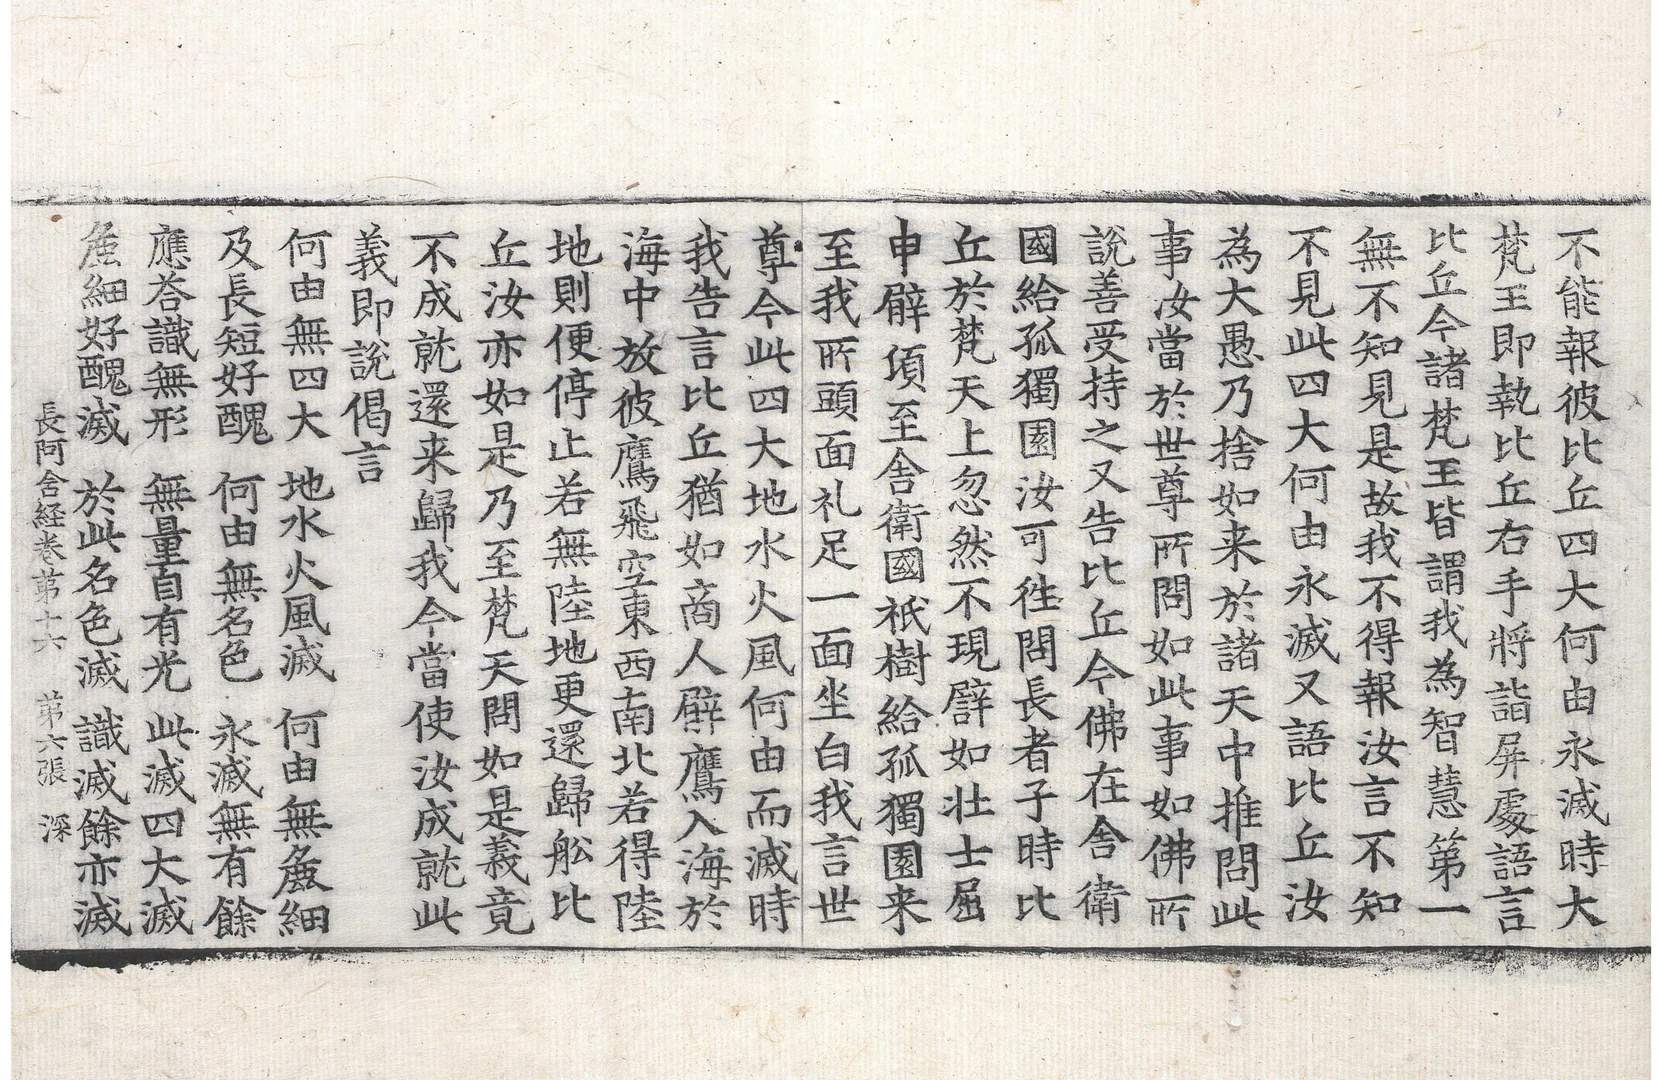 不能報彼比丘四大何由永滅時大
梵王即執比丘右手將詣屏處語言
比丘今諸梵王皆謂我為智慧第一
無不知見是故我不得報汝言不知
不見此四大何由永滅又語比丘汝
為大愚乃捨如来於諸天中推問此
事汝當於世尊所問如此事如佛所
說善受持之又告比丘今佛在舍衛
國給孤獨園汝可徃問長者子時比
丘於梵天上忽然不現譬如壮士屈
申臂項至舍衛國祇樹給孤獨園来
至我所頭面礼足一面坐白我言世
尊今此四大地水火風何由而滅時
我告言比丘猶如商人臂鷹入海於
海中放彼鷹飛空東西南北若得陸
地則便停止若無陸地更還歸舩比
丘汝亦如是乃至梵天問如是義竟
不成就還来歸我今當使汝成就此
義即說偈言
何由無四大　地水火風滅　何由無麁細
及長短好醜　何由無名色　永滅無有餘
應荅識無形　無量自有光　此滅四大滅
麁細好醜滅　於此名色滅　識滅餘亦滅
長阿含経卷苐十六　苐六張　深